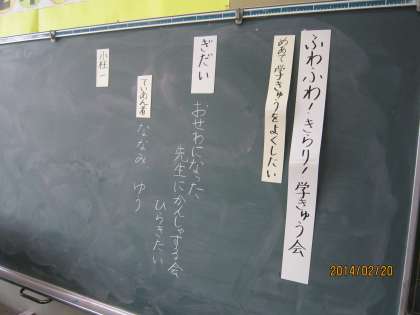 ふわふわ！きらり！学きゅう会
めあて 学きゅうをよくしたい
ぎだい
おせわになった
先生にかんしゃする会
ひらきたい
ていあん者
ななみ ゆう
2014/02/20